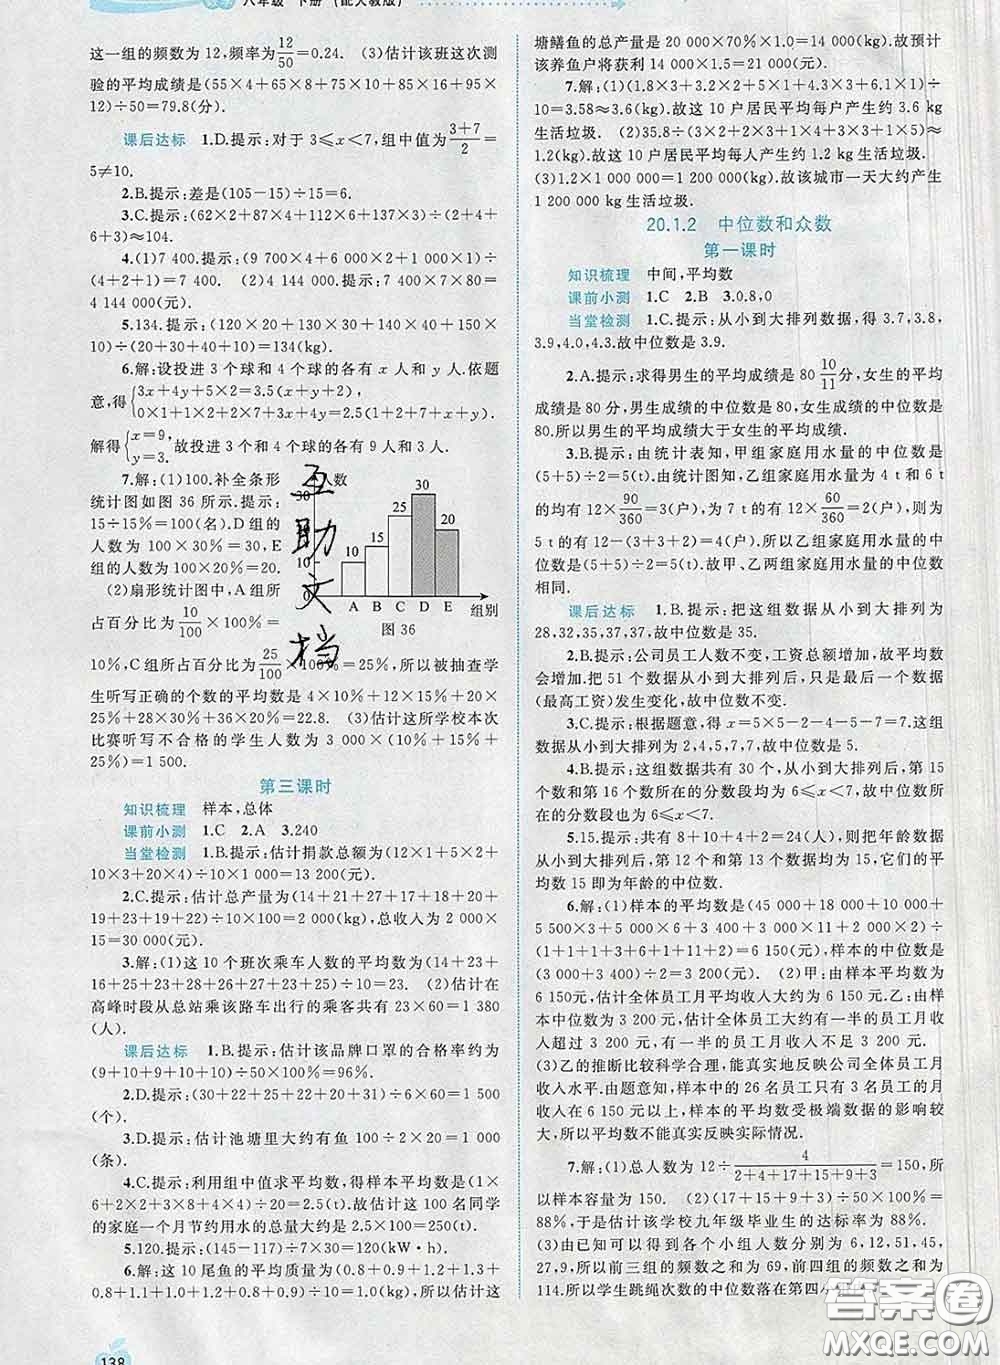 八年级 下册(配人教版)
这一组的频数为 12,频率为12/50=0.24. (3)估计该班这次测
验的平均成绩是(55×4+65×8+75×10+85×16+95×
12)÷50=79.8(分).
课后达标 1.D.提示:对于 3⩽x<7,组中值为(3+7)/2=
5≠10.
2.B.提示:差是(105-15)÷15=6.
3.C.提示:(62×2+87×4+112×6+137×3)÷(2+4+6+
3)≈104.
4.(1)7 400.提示:(9 700×4+6 400×3+7 600×2+7
800×1)÷(4+3+2+1)=7 400. (2)4 144 000.提示:7 400×7×80=
4 144 000(元).
5.134.提示:(120×20+130×30+140×40+150×
10)÷(20+30+40+10)=134(kg).
6.解:设投进 3 个球和 4 个球的各有 x 人和 y 人.依题
意,得{3x+4y+5×2=3.5(x+y+2),
0×1+1×2+2×7+3x+4y=2.5(1+2+7+x+y).
解得{x=9,
y=3.故投进 3 个和 4 个球的各有 9 人和 3 人.
7.解:(1)100.补全条形
统计图如图 36 所示.提示:
15÷15%=100(名).D 组的
人数为 100×30%=30,E
组的人数为 100×20%=20.
(2)扇形统计图中,A 组所
占百分比为10/100×100%=
人数
30
30
25
20
15
10
10
0
A B C D E 组别
图 36
互助文档
10%,C组所占百分比为25/100×100%=25%,所以被抽查学
生听写正确的个数的平均数是 4×10%+12×15%+20×
25%+28×30%+36×20%=22.8. (3)估计这所学校本次
比赛听写不合格的学生人数为 3 000×(10%+15%+
25%)=1 500.
第三课时
知识梳理 样本,总体
课前小测 1.C 2.A 3.240
当堂检测 1.B.提示:估计捐款总额为(12×1+5×2+
10×3+20×4)÷10×1 000=13 200(元).
2.C.提示:估计总产量为(14+21+27+17+18+20+
19+23+19+22)÷10×100=2 000(kg),总收入为 2 000
×15=30 000(元).
3.解:(1)这 10 个班次乘车人数的平均数为(14+23+
16+25+23+28+26+27+23+25)÷10=23. (2)估计在
高峰时段从总站乘该路车出行的乘客共有 23×60=1 380
(人).
课后达标 1.B.提示:估计该品牌口罩的合格率约为
(9+10+9+10+10)÷50×100%=96%.
2.D.提示:(33+25+28+26+25+31)÷6×60=1 500
(个).
3.D.提示:估计池塘里大约有鱼 100÷2×20=1 000
(条).
4.C.提示:利用组中值求平均数,得平均数为(1×
6+2×2+3×8+4×4)÷20=2.5(t).故估计这 100 名同学
的家庭一个月节约用水的总量大约是 2.5×100=250(t).
5.120.提示:(145-117)÷7×30=120(kW·h).
6.解:这 10 尾鱼的平均质量为(0.8+0.9+1.2+1.3+
0.8+1.1+1.0+1.2+0.8+0.9)÷10=1(kg).估计这
138
塘鳝鱼的总产量是 20 000×70%×1=14 000(kg).故预计
该养鱼户将获利 14 000×1.5=21 000(元).
7.解:(1)(1.8×3+3.2×2+4.3×3+4.9×1+6.1×1)÷
10=3.58≈3.6(kg).故这 10 户居民平均每户产生约 3.6 kg
生活垃圾. (2)35.8÷(3×2+2×3+3×4+1×3+1×5)≈
1.2(kg).故这 10 户居民平均每人产生约 1.2 kg 生活垃圾.
(3)1.2×1 000 000=1 200 000(kg).故该城市一天大约产生
1 200 000 kg 生活垃圾.
20.1.2 中位数和众数
第一课时
知识梳理 中间,平均数
课前小测 1.C 2.B 3.0.8,0
当堂检测 1.C.提示:从小到大排列数据,得 3.7,3.8,
3.9,4.0,4.3.故中位数是 3.9.
2.A.提示:求得男生的平均成绩是 80 10/11分,女生的平均
成绩是 80 分,男生成绩的中位数是 80,女生成绩的中位数是
80.所以男生的平均成绩大于女生的平均成绩.
3.B.提示:由统计表知,甲组家庭用水量的中位数是
(5+5)÷2=5(t).由统计图知,乙组家庭用水量为 4 t 和 6 t
的均有 12×90/360=3(户),为 7 t 的有 12×60/360=2(户),则为
5 t 的有 12-(3+3+2)=4(户).所以乙组家庭用水量的中位数
是(5+5)÷2=5(t).故甲、乙两组家庭用水量的中位数
相同.
课后达标 1.B.提示:把这组数据从小到大排列为
28,32,35,37,37,故中位数是 35.
2.B.提示:公司员工人数不变,工资总额增加,故平均数
会增加.把 51 个数据从小到大排列后,只是最后一个数据
(最高工资)发生变化,故中位数不变.
3.C.提示:根据题意,得 x=5×5-2-4-5-7=7.这组
数据从小到大排列为 2,4,5,7,7,故中位数是 5.
4.B.提示:这组数据共有 30 个,从小到大排列后,第 15
个和第 16 个所在的分数段均为 6⩽x<7,故中位数所
在的分数段为 6⩽x<7.
5.15.提示:共有 8+10+4+2=24(人),则把年龄数据
从小到大排列后,第 12 个和第 13 个数据均为 15,它们的平
均数 15 即为年龄的中位数.
6.解:(1)样本的平均数是(45 000+18 000+10 000+
5 500×3+5 000×6+3 400×1+3 000×11+1 000×2)÷
(1+1+1+3+6+1+11+2)=6 150(元),样本的中位数是
(3 400+3 000)÷2=3 200(元). (2)甲:由样本平均数
6 150 元,估计全体员工月平均收入大约为 6 150 元.乙:由样
本中位数为 3 200 元,估计全体员工大约有一半的员工月收
入超过 3 200 元,有一半的员工月收入不足 3 200 元.
(3)乙的推断比较科学合理,能真实地反映公司全体员工月
收入水平.由题意知,样本中的 26 名员工只有 3 名员工的收入在
6 150 元以上,样本的平均数受极端数据的影响较
大,所以平均数不能真实反映实际情况.
7.解:(1)总人数为 12÷4/(2+4+17+15+9+3)=150,所
以样本容量为 150. (2)(17+15+9+3)÷50×100%=
88%,于是估计该学校九年级毕业生的达标率为 88%.
(3)由已知可以得到各个小组人数分别为 6,12,51,45,27,
9,所以前三组的频数之和为 69,前四组的频数之和为
114.所以学生跳绳次数的中位数落在第四小
答案圈
MXQE.COM